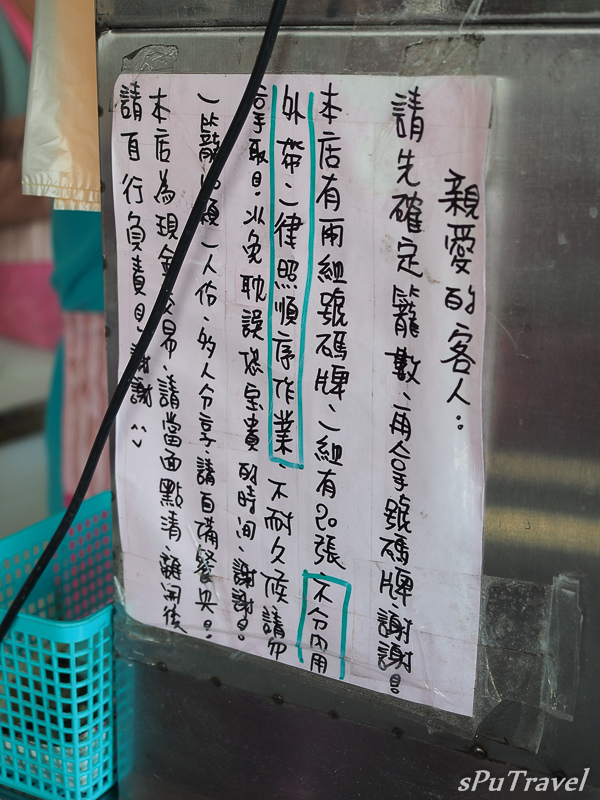 親愛的客人:
請先確定籠數、再拿號碼牌、謝謝!
本店有兩組號碼牌、一組有20張 不分內用
外帶、一律照順序作業、不耐久候請勿
拿取!以免耽誤您寶貴的時間、謝謝!
一籠 顆一人份、多人分享、請自備餐具!
本店為現金交易、請當面點清、離開後
請自行負責!謝謝 ^^
sPuTravel